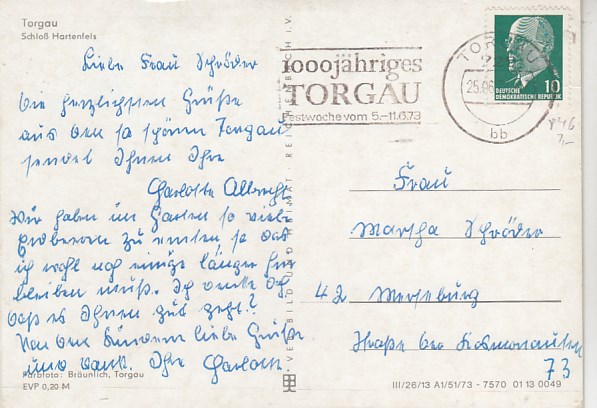 Torgau
Schloß Hartenfels
Liebe Frau Schröder
die herzlichsten Grüße
aus dem so schönen Torgau
sendet Ihnen Ihre
Charlotte Albrecht
Wir haben im Garten so viele
Erdbeeren zu ernten, so daß
ich wohl noch einige länger hier
bleiben muß. Ich denke doch
daß es Ihnen gut geht?
Von den Kindern liebe Grüße
und Dank. Ihre Charlotte
Farbfoto: Bräunlich, Torgau
EVP 0,20 M
VEB BILD UND HEIMAT · REICHENBACH I.V.
1000jähriges
TORGAU
Festwoche vom 5.–11.6.73
TORGAU
25.06
bb
DEUTSCHE
DEMOKRATISCHE REPUBLIK
10
Frau
Martha Schröder
42 Merseburg
Straße der Kosmonauten
73
III/26/13 A1/51/73 - 7570 01 13 0049